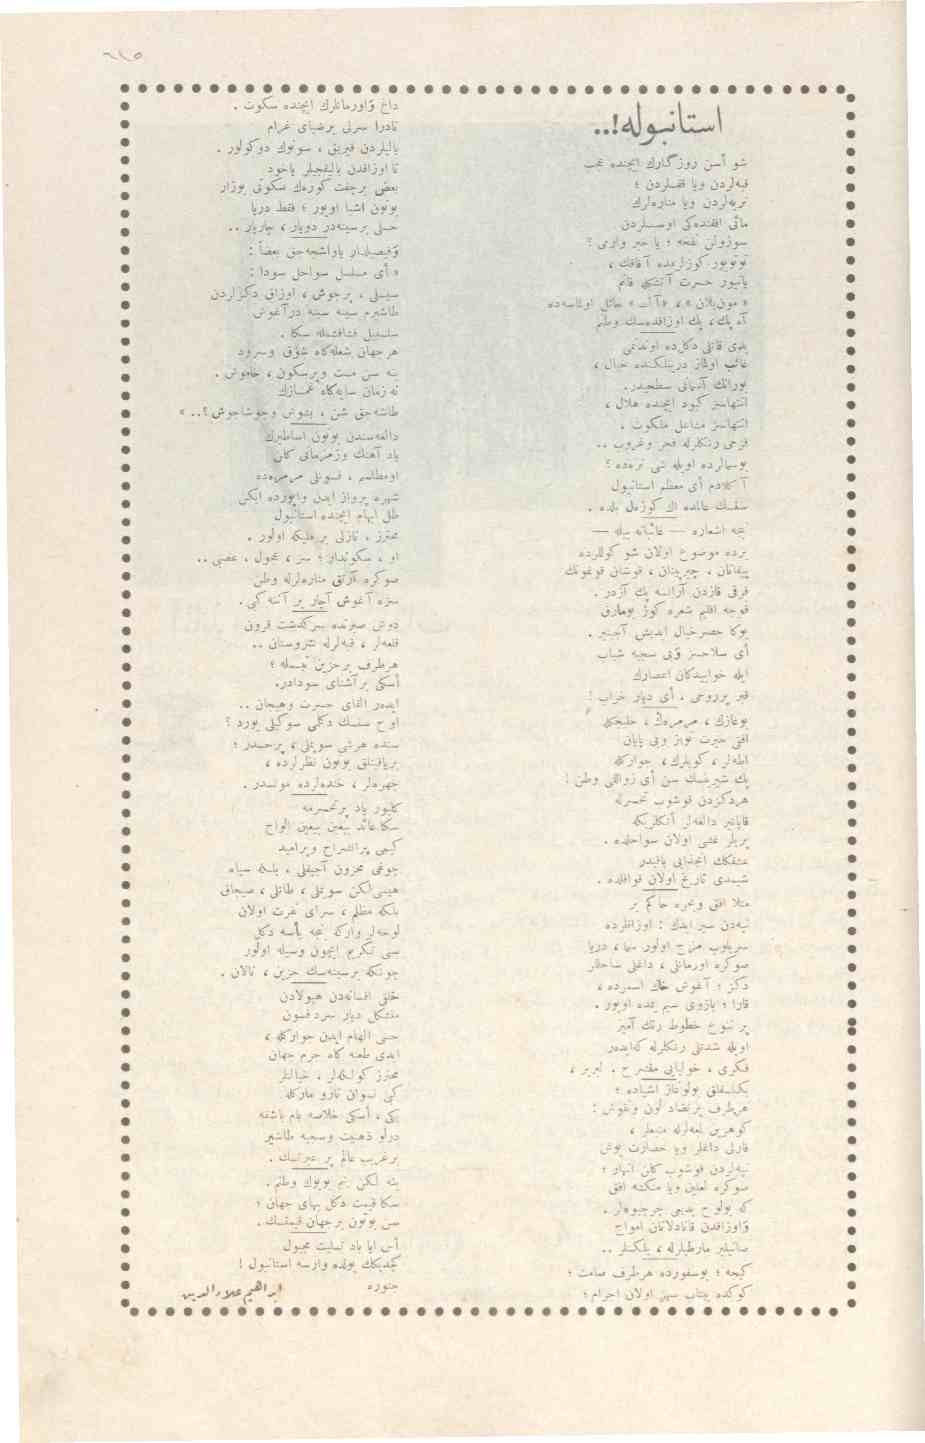 ٦١٥
استانبوله!..
شو أسن روزگارك ایچنده عجب
قبه‌لردن ویا قفسلردن ؛
تربه‌لردن ویا مناره‌لرك
مائی افقنده‌كی اوسسلردن
سوزولن نفحه ؛ یا خبر وارمی ؟
توتویور كوزلرمده آفاقك ،
یانیور حسرت آتشیله قانم
آه پك ، پك اوزاقده‌سك وطنم
یدی قاتلی دكلده اوندنمی
غائب اولماز درینلكنده خیال ،
بورانك آسمانی سطحیدر.
انتهاسز كبود ایچنده هلال ،
انتهاسز مشاعل ملكوت ،
فرحی رنكلرله فجر وغروب ..
بوسمالرده اویله شی نره‌ده ؟
آكلادم أی معظم استانبول
سنسك عالمده اك كوزل بلده .
نجه اشعاره — غائبانه بیله —
برده موضوع اولان شو كوللرده
چیرپینان ، قوشان قوغونك
فرقی قازدن آزانسه پك آزدر .
قوجه اقلیم شعره كوز یومارق
بوكا حصر خیال ایدیش آجینیر .
أی سلاحسز قوی سجیه شباب
ایله خوابیدكان اعصارك
قبر پرروحی ، أی دیار خراب !
بوغازك ، مرمره‌ڭ ، خلیجكله
افق حیرت نویز وبی پایان
اطه‌لر ، كویلرك ، جوارڭله
پك شیرینسك سن أی زواللی وطن !
هردكزدن قوشوب تحسرله
قایناشیر دالغه‌لر آتكلریكه
پریلر عشی اولان سواحلده .
عشقكك انجذابی باقیدر
شیمدی تاریخ اولان قوافلده .
مثلا افق وبحره حاكم بر
تپه‌دن سیر ایدك : اوزاقلرده
سریلوب مزج اولور سما ، دریا
صوكره اورمانلی ، داغلی ساحللر
دكز ؛ آغوش خاك اسمرده ،
قارا ؛ بازوی سیم یمده اویور .
پر تنوع خطوط رنك آمیز
اویله شدتلی رنكلرله كه‌ایدەر
فكری ، خولیایی مقترح ، لبریز ،
یكنسقلق بولونماز اشیاده ؛
هرطرف پرتضاد لون ونقوش :
كوهرین لمعه‌لرله مشعلر ،
قارلی داغلر ویا حضارت پوش
تپه‌لردن قوشوب كلن انهار ؛
صوكره لعلین ویا منكشه افق
كه بولوح بدیعی چرچیوه‌لر .
واوزاقدن قانادلانان امواج
صانیلیر مارطیلرله ، یلكنلر ..
كیجه ؛ بوسفورده هرطرف صامت ؛
كوكده بیتاب سیر اولان اجرام ؛
داغ واورمانلرك ایچنده سكوت .
نادرا سرلی برضیای غرام
یالیلردن قیریق ، سونوك دوكولور .
تا اوزاقدن بالیقجیلر یاخود
بعض برچفت كوره‌ك سكوتی بوزار
بوتون اشیا اویور ؛ فقط دریا
حسلی برسینه‌در دویار ، چارپار ..
وفیصلدار یاواشجه‌جق بعضاً :
« أی مسلسل سواحل سودا :
سیسلی ، پرجوش ، اوزاق دكزلردن
طاشیرم سینه سینه درآغوش
سلسبیل فشافشمله سكا .
هرجهان شعله‌گاه شوق وسرود
ینه سن مست وپرسكون ، خاموش .
نه زمان سایه‌كاه غمسازك
طاشه‌جق شن ، بنبوش وجوشاجوش ؟.. »
دالغه‌سندن بوتون اساطیرك
یاد آهنك وزمزماتی كلن
اومطلسم ، فسونلی مرمره‌ده
شهره پرواز ایدن واپورده ایكن
ظل ابهام ایچنده استانبول
محترز ، نازلی بر ملیكه اولور .
او ، سكونتدار ؛ سز ، عجول ، عصبی ..
صوكره آرتق مناره‌لرله وطن
سزه آغوش آچار بر آننه كبی .
دوش صبرنده سرگذشت قرون
قلعه‌لر ، قبه‌لرله شعرستان ..
هرطرف برحزین تبسمله ؛
أسكی برآشنای سودادر.
ایدەر القای حسرت وهیجان ..
اوح سنسك دكلمی سوكیلی یورد ؟
سنده هرشی سویملی ، پرحسدر ؛
بریاقینلق بوتون نظرلرده ،
چهره‌لر ، خنده‌لرده مونسدر .
كلیور یاد پرتحسرمه
سكا عائد ییغین ییغین الواح
كیمی پرانشراح وپرامید
چوغی محزون آجیقلی ، یاسله سیاه
هپسی لكن سویملی ، طاتلی ، صیجاق
بلكه مظلم ، سرای نفرت اولان
لوحه‌لر واركه نجه یأسه دكل
سنی تكریم ایچون وسیله اولور
چونكه برسینه‌سك حزین ، نالان .
خلقی افسانه‌دن هیولادن
متشكل دیار سرد فسون
حسی الهام ایدن جوارڭله ،
ایدی طعنه كاه جرم جهان
محترز كولكه‌لر ، خیاللر
كبی نسوان نازو مارڭله
یكی ، أسكی خلاصه بام باشقه
درلو ذهنیت وسجیه طاشیر
برغریب عالم پر عبرتسك .
ینه لكن بنم بویوك وطنم .
سكا قیمت دكل بهای جهان ؛
سن بوتون برجهان قیمتسك .
أس ایا باد تسلیت مجبول
كچدیكك یولده وارسه استانبول !
جنوره
ابراهیم علاءالدین